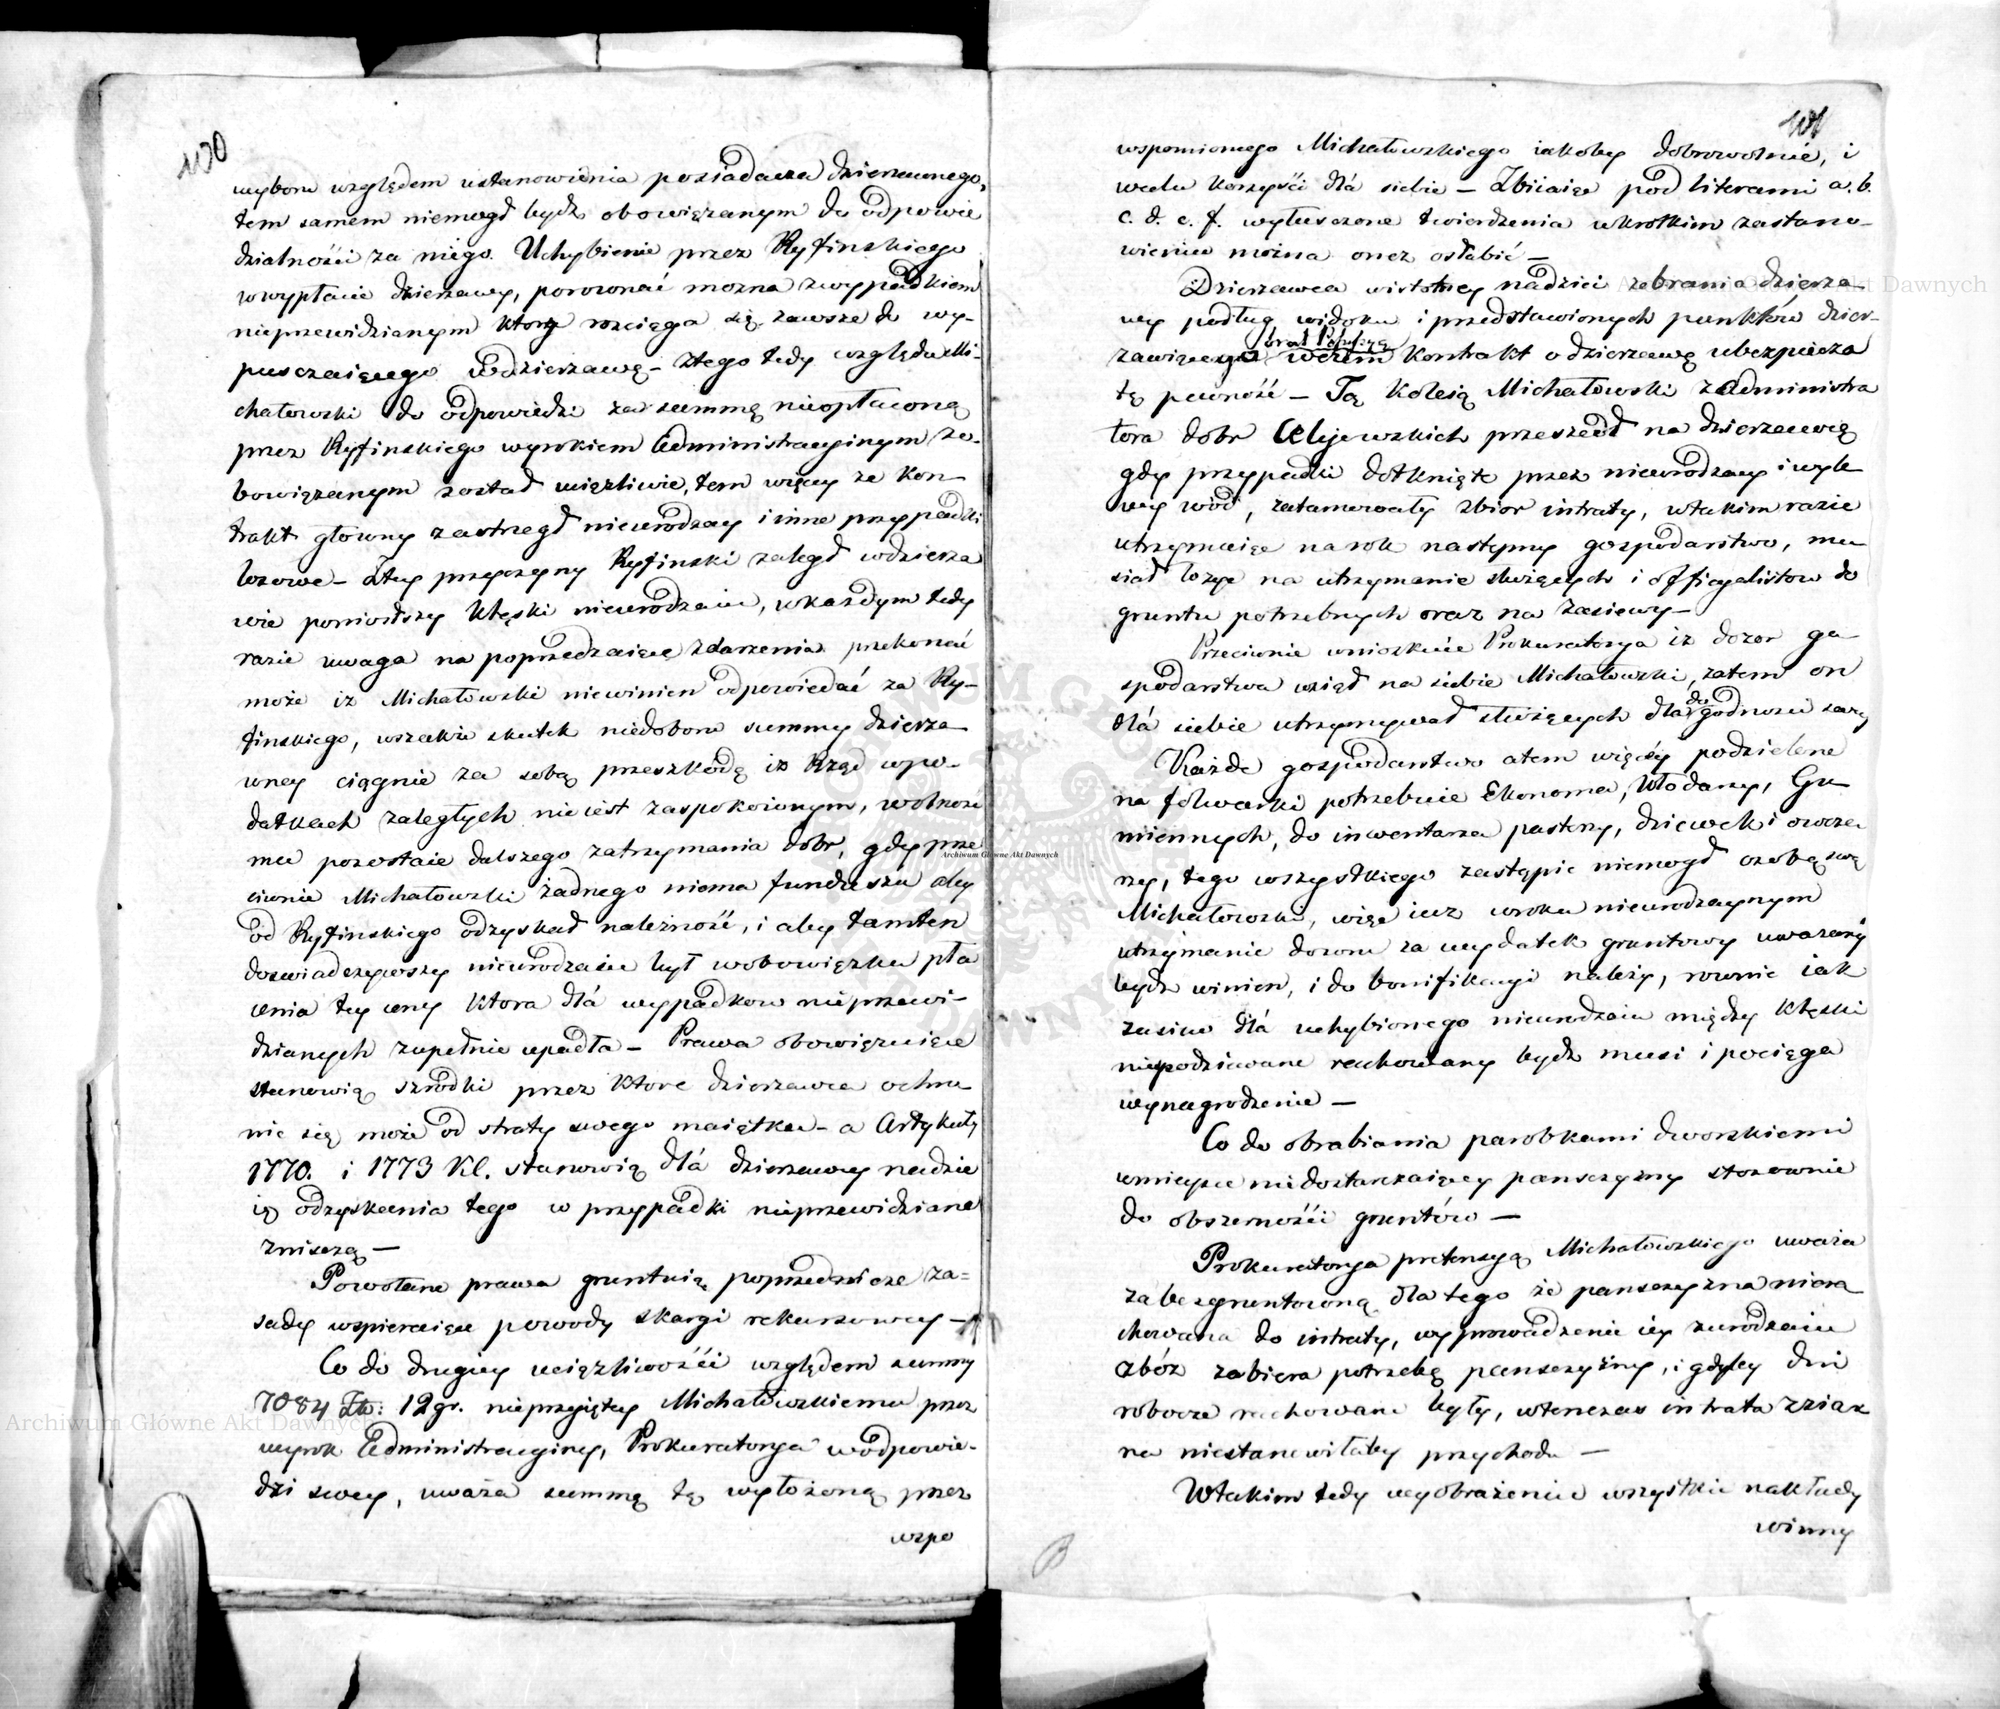 1130
wyboru względem ustanowienia posiadacza dzierzawnego,
tem samem niemogł bydz obowiązanym do odpowie
dzialności za niego. Uchybienie przez Ryfinskiego
w wypłacie dzierzawy, porownać mozna z wypadkiem
nieprzewidzianym ktory rozciąga się zawsze do wy-
puszczaiącego w dzierzawę – Ztego tedy względu Mi-
chałowski do odpowiedzi za summę nieopłaconą
przez Ryfinskiego wyrokiem Administracyinym zo-
bowiązanym został uciązliwie, tem więcy ze kon-
trakt głowny zastrzegł nieurodzay i inne przypadki
losowe – Ztey przyczyny Ryfinski zaległ w dzierza
wie poniosłszy klęski nieurodzaiu, w kazdym tedy
razie uwaga na poprzedzaiące zdarzenia przekonać
może iz Michałowski niewinien odpowiedać za Ry-
finskiego, wszakże skutek niedoboru summy dzierza
wney ciągnie za sobą przeszkodę iz Rząd w po-
datkach zaległych nie iest zaspokoionym, wolność
mu pozostaie dalszego zatrzymania dobr, gdy prze
ciwnie Michałowski żadnego niema funduszu aby
od Ryfinskiego odzyskał należność, i aby tamten
doswiadczywszy nieurodzaiu był w obowiązku pła
cenia tey ceny ktora dlá wypadkow nieprzewi-
dzianych zupełnie upadła – Prawa obowięzuiące
stanowią szrodki przez ktore dzierzawca ochro
nic się może od straty swego maiątku – a Artykuły
1770. i 1773 Kl. stanowią dlá dzierzawcy nadzie
ię odzyskania tego w przypadki nieprzewidziane
zniszczą —
Powołane prawa gruntuią poprzednicze za=
sady wspieraiące powody skargi rekursowey –
Co do drugiey uciązliwości względem summy
7084 Złł: 12 gr. nieprzyiętey Michałowskiemu przez
wyrok Administracyiny, Prokuratorya w odpowie-
dzi swey, uważa summę tę wyłożoną przez
wspo
wspomionego Michałowskiego iakoby dobrowolnie, i
w celu korzyści dlá siebie – Zbiiaiąc pod literami a. b.
c. d. e. f. wyłuszczone twierdzenia w krotkim zastano-
wieniu można onez osłabić –
Dzierzawca w istotney nadziei zebrania dzierza-
wy podług widoku i przedstawionych punktów dzier-
tę pewność – Tą koleią Michałowski z Administra
tora dobr przeszedł na dzierzawcę
gdy przypadki dotknięte przez nieurodzay i wyle
wy wód, zatamowały zbior intraty, w takim razie
utrzymuiąc na rok następny gospodarstwo, mu
siał łozyc na utrzymanie służących i officyalistow do
gruntu potrzebnych oraz na zasiewy –
Przeciwnie wnioskuie Prokuratorya iz dozor go
spodarstwa wziął na siebie Michałowski, zatem on
dlá siebie utrzymywał służących dla do godnosci swey
Każde gospodarstwo a tem więcéy podzielone
na folwarki potrzebuie Ekonoma, Włodarzy, Gu
miennych, do inwentarza pasterzy, dziewek i owcza
rzy, tego wszystkiego zastąpic niemogł osobą swą
Michałowski, więc iuz w roku nieurodzaynym
utrzymanie dozoru za wydatek gruntowy uwazany
bydz winien, i do bonifikacyi należy, rownie iak
zasiew dlá uchybionego nieurodzaiu między klęski
niespodziewane rachowany bydz musi i pociąga
wynagrodzenie —
Co do obrabiania parobkami dworskiemi
w mieysce niedostarczaiącey panszczyzny stosownie
do obszerności gruntów —
Prokuratorya pretensyą Michałowskiego uważa
za bezgruntowną dla tego że panszczyzna niera
chowana do intraty, wyprowadzenie iey z urodzaiu
zbóz zabiera potrzebę panszczyzny, i gdyby dni
robocze rachowane były, wtenczas intrata z ziar
na niestanowiłaby przychodu —
W takim tedy wyobrażeniu wszystkie nakłady
winny
Archiwum Główne Akt Dawnych